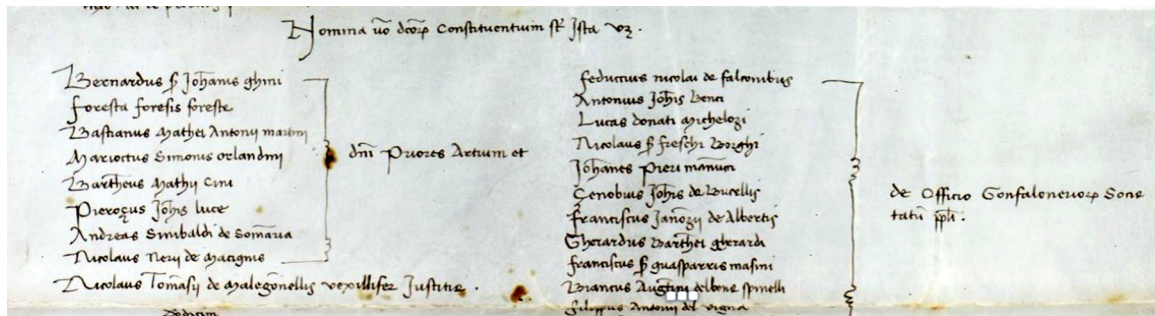 Nomina vo dcorp Constituentium st Ista vz.
Bernardus ß Johanis ghini
foresta foresis foreste
Bastianus Mathei Antonij martini
Mariottus Simonis orlandini
Bartheus Mathij Cini
Pieroçus Johis luce
Andreas Sinibaldi de Somaria
Nicolaus Nerij de Macignis
dni Priores Artium et
Nicolaus Tomasij de Malegonellis vexillifer Justitie.
feduccius nicolai de falconibus
Antonius Johis Benci
Lucas donati Michelozi
Nicolaus ß freschi Borghi
Johanes Pieri manuci
Çenobius Johis de Bucellis
franciscus Janozij de Albertis
Gherardus Barthei gherardi
franciscus ß guasparris masini
Brancus Augtini spinelli
filippus Antonij del vigna
de Officio Gonfaloneriorp Socie
tatu ppli.